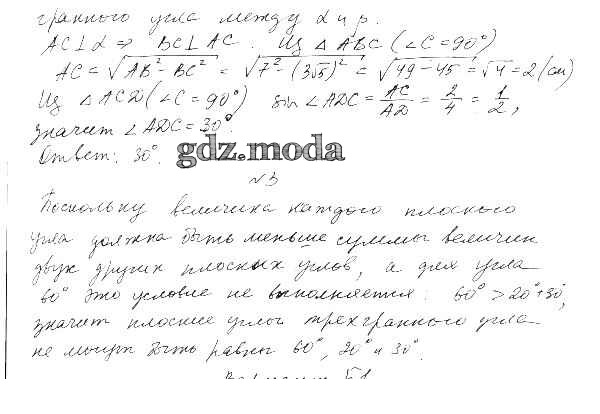 гранного угла между α и β.
AC⊥α ⇒ BC⊥AC. Из △ABC (∠C=90°)
AC = √AB² − BC² = √7² − (3√5)² = √49 − 45 = √4 = 2 (см)
Из △ACD (∠C = 90°) sin ∠ADC = AC/AD = 2/4 = 1/2,
значит ∠ADC = 30°.
Ответ: 30°.
gdz.moda
№3
Поскольку величина каждого плоского
угла должна быть меньше суммы величин
двух других плоских углов, а для угла
60° это условие не выполняется: 60° > 20° + 30°,
значит плоские углы трехгранного угла
не могут быть равны 60°, 20° и 30°.